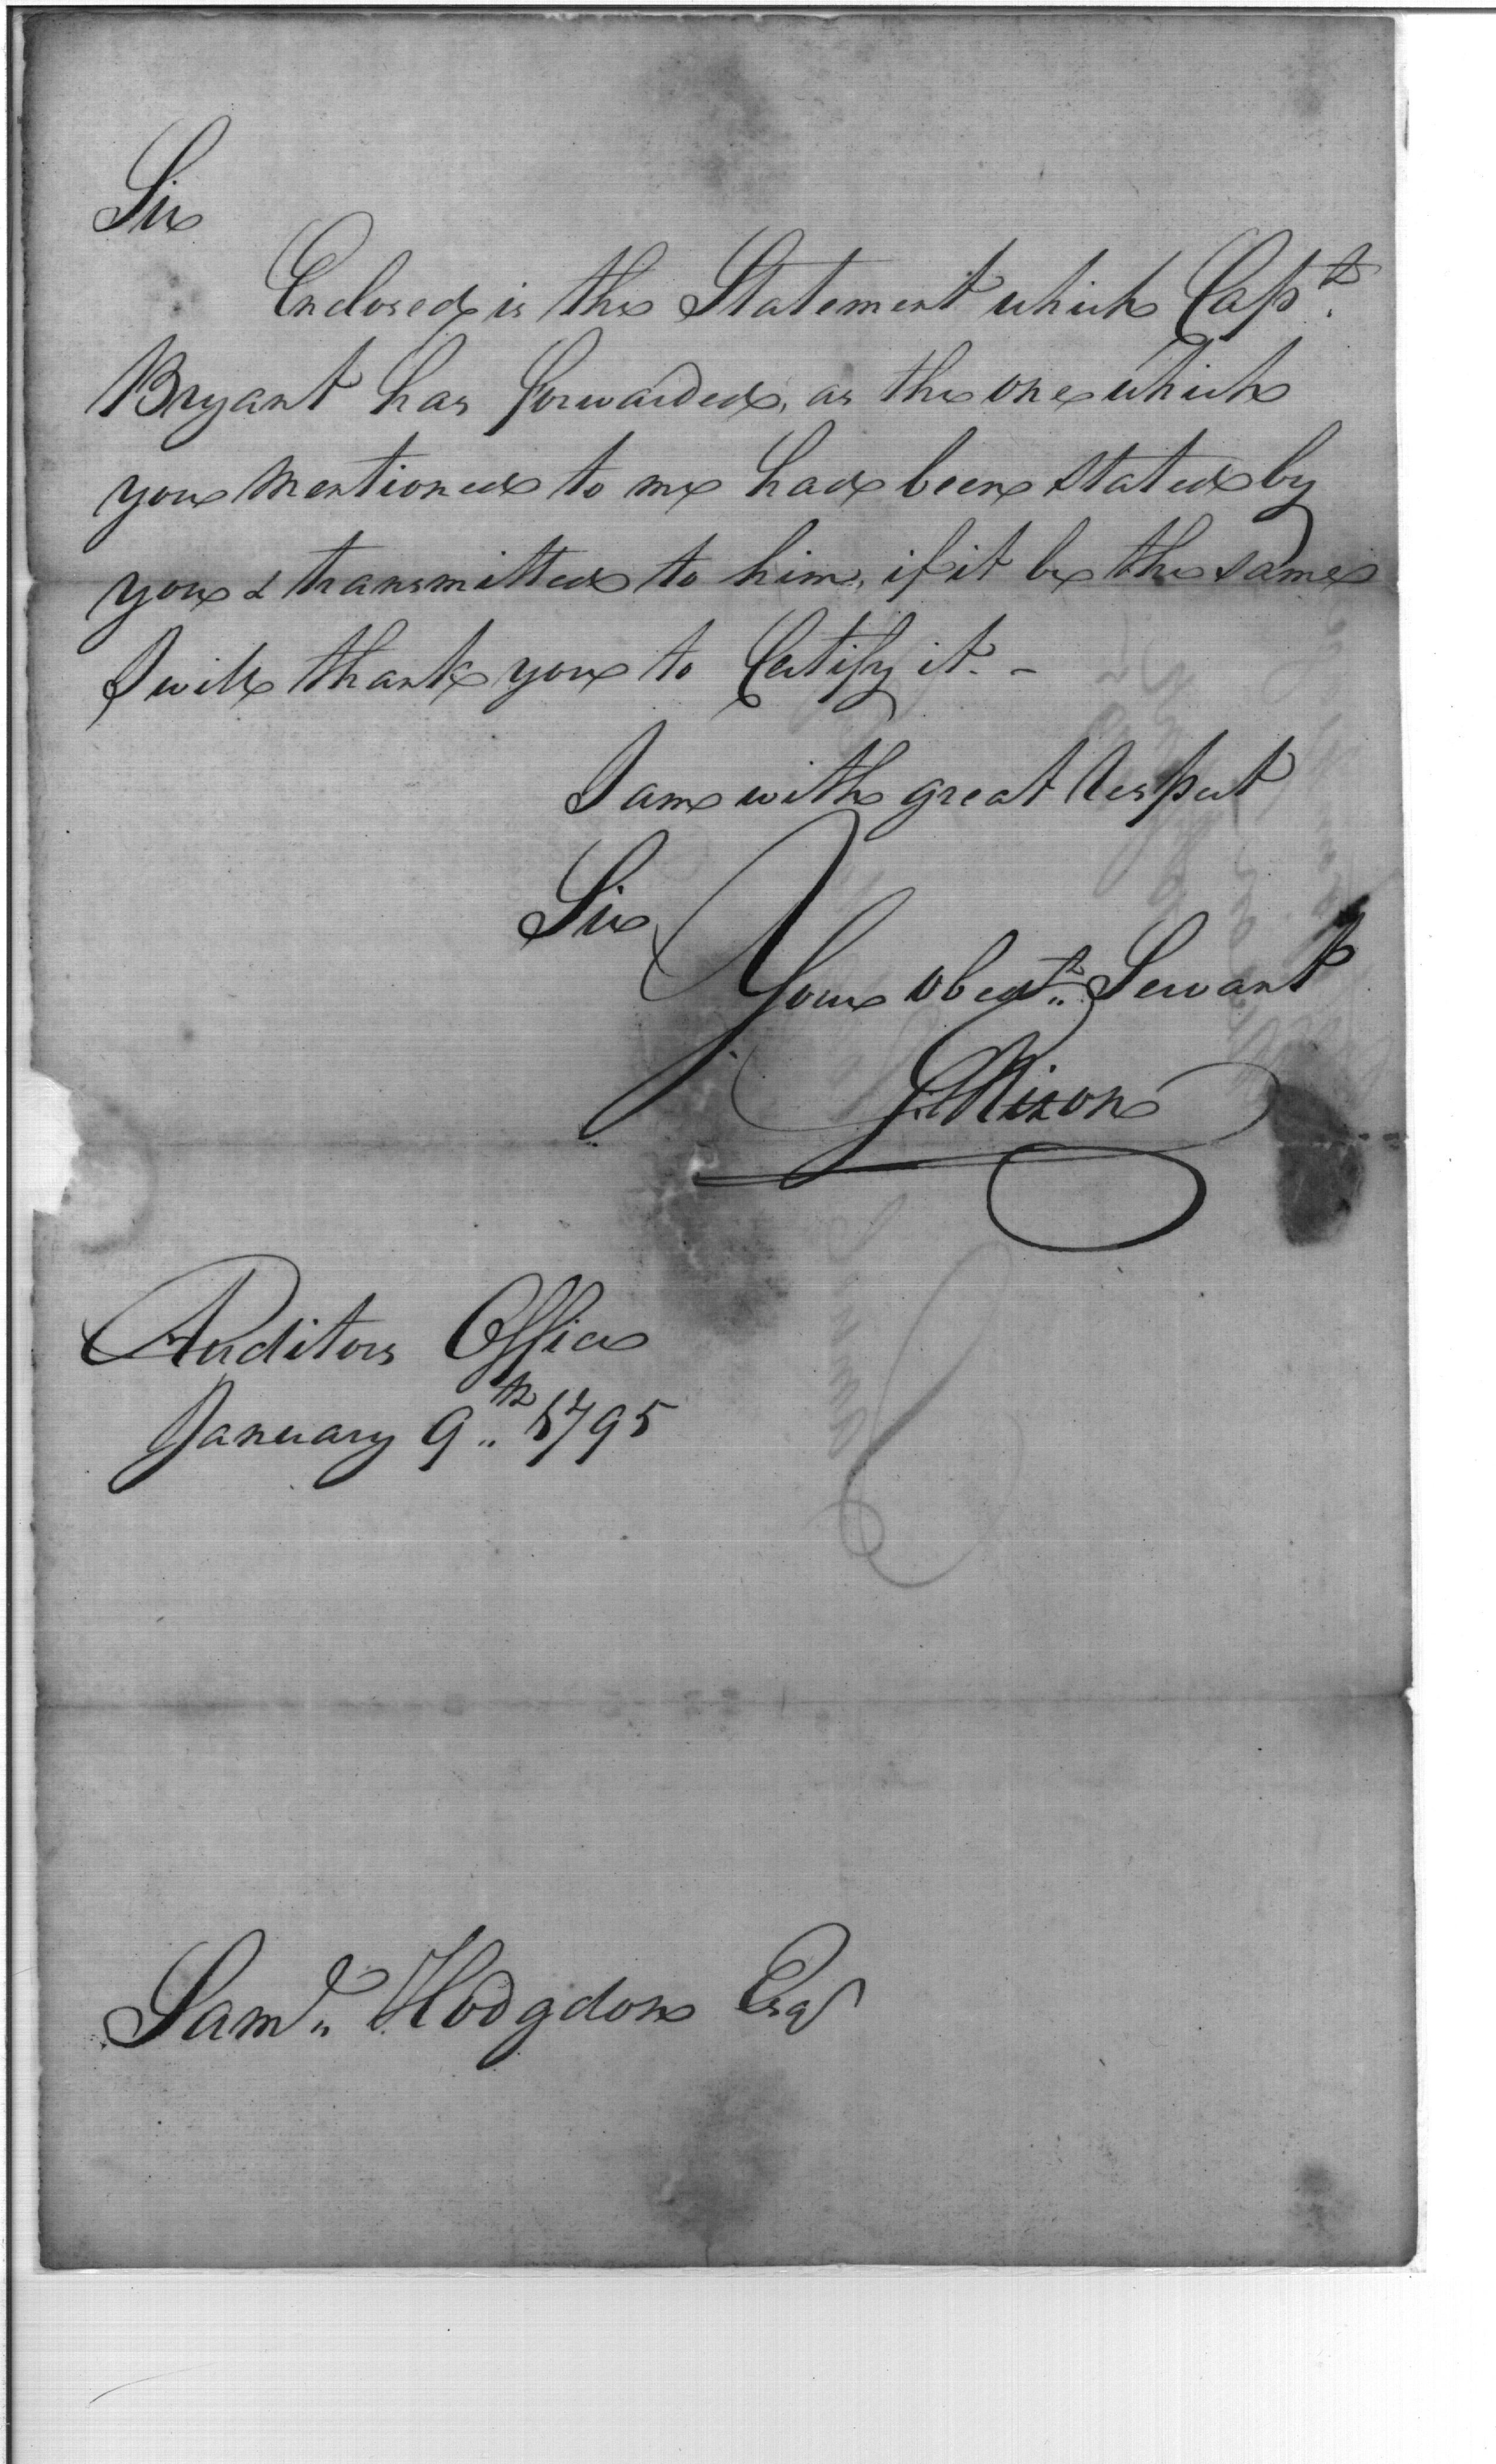 Sir
Enclosed is the Statement which Capt.
Bryant has forwarded, as the one which
you mentioned to me had been stated by
you & transmitted to him, if it be the same
I will thank you to Certify it. -
I am with great respect
Sir
Your obedt. Servant
Nixon
Auditors Office
January 9th 1795
Saml. Hodgdon Esqr